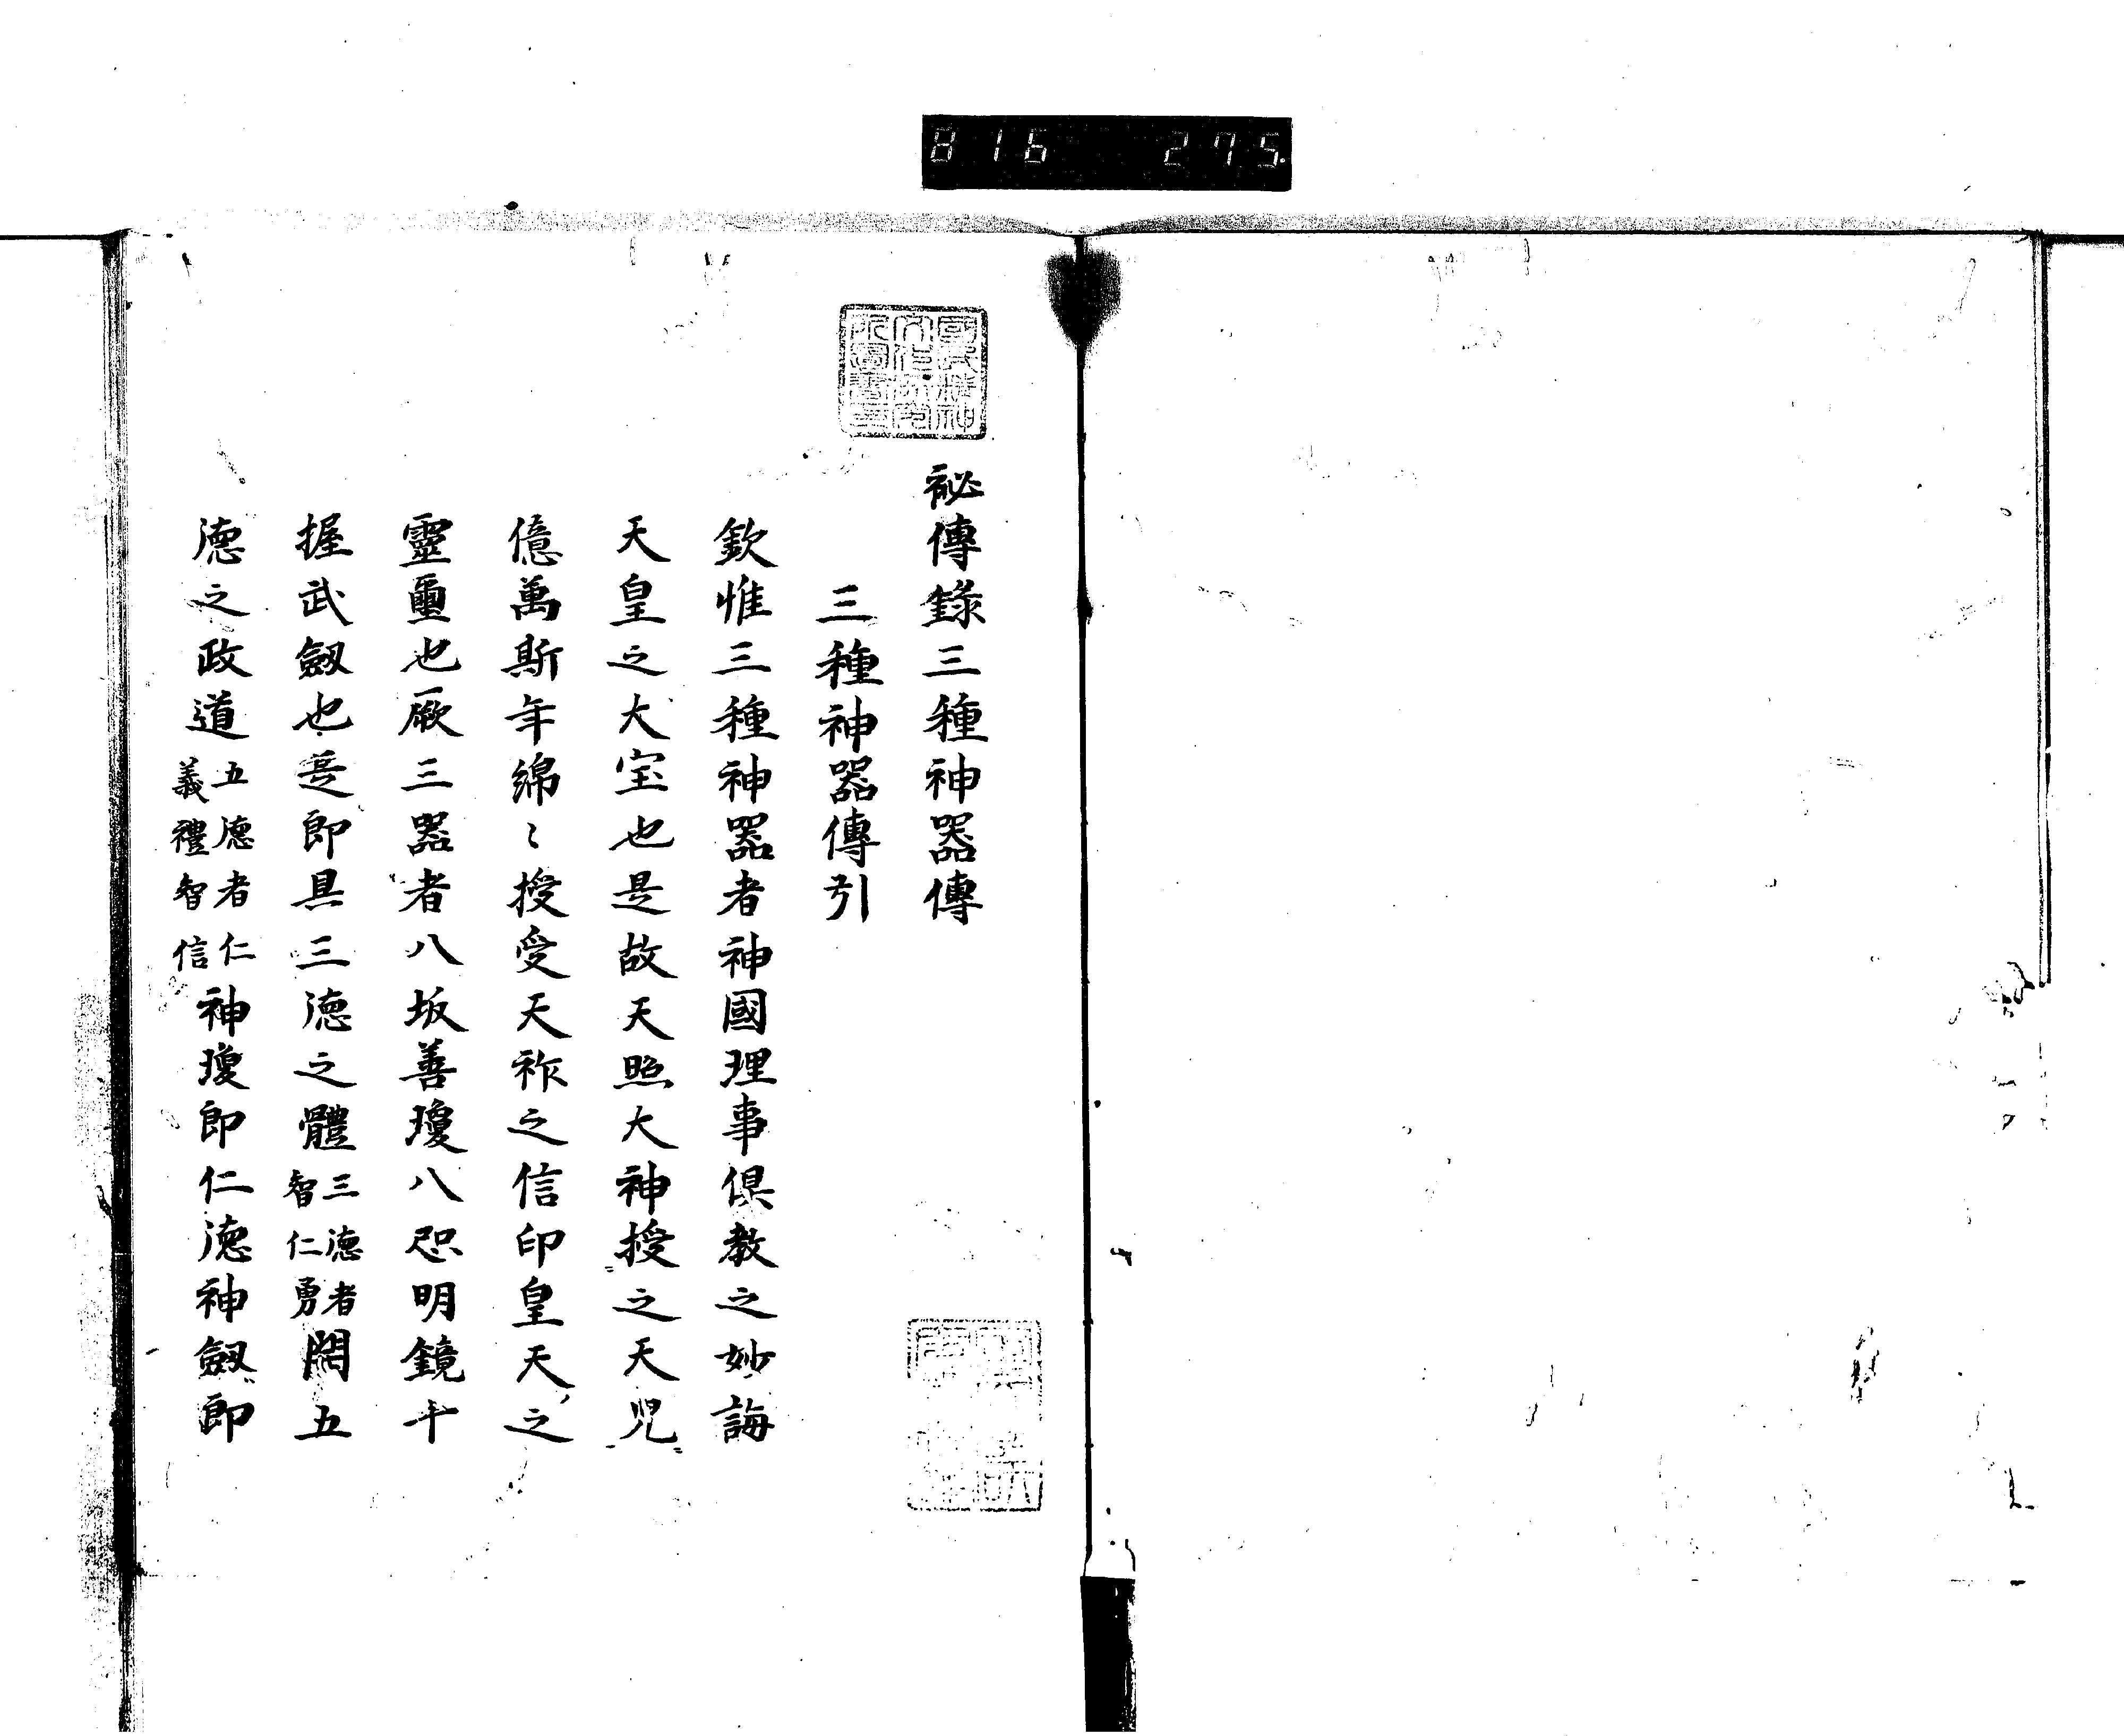 816 275
國民精神
文化研究
所圖書印
祕傳錄三種神器傳
三種神器傳引
欽惟三種神器者神國理事俱教之妙誨
天皇之大宝也是故天照大神授之天児
億萬斯年綿〻授受天祚之信印皇天之
靈璽也厥三器者八坂善瓊八咫明鏡十
握武劔也是即具三德之體三德者智仁勇闓五
德之政道五德者仁義禮智信神瓊即仁德神劔即